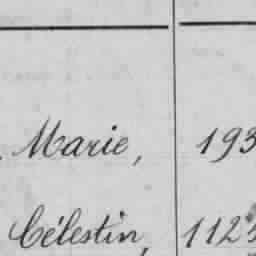 Marie, 193
Célestin, 1123